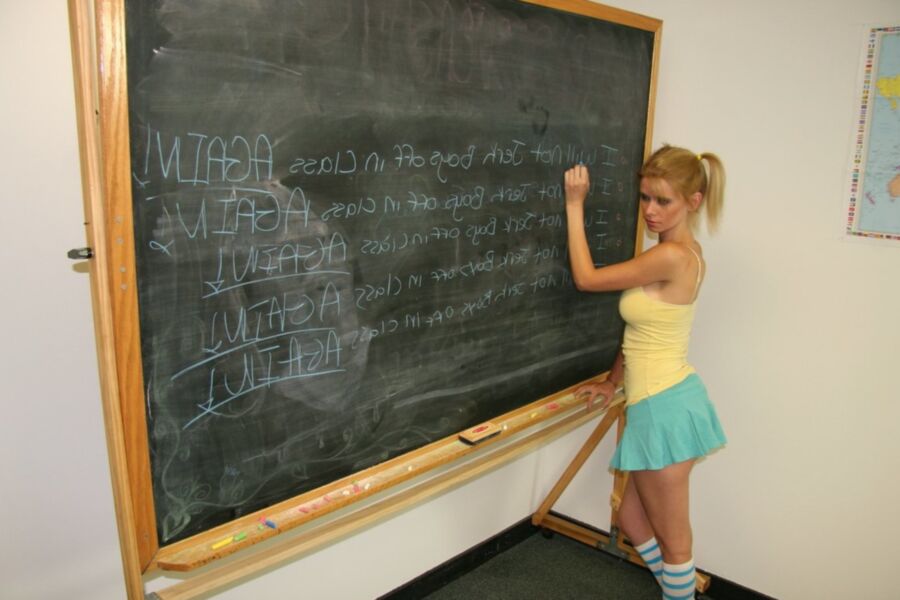 I will not Jerk Boys off in Class AGAIN!
I not Jerk Boys off in Class AGAIN!
I not Jerk Boys off in Class AGAIN!
I not Jerk Boys off in Class AGAIN!
not Jerk Boys off in Class AGAIN!